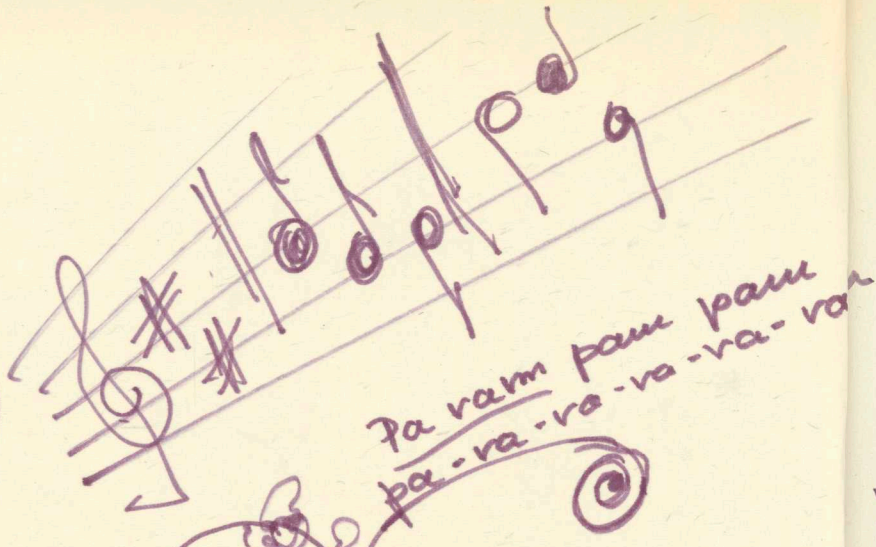 Pa ram pam pam
pa-ra-ra-ra-ra-ra